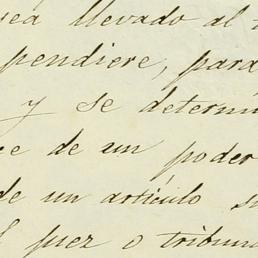 sea llevado al
pendiere, para
y se determi
de un poder
de un artículo
juez o tribuna